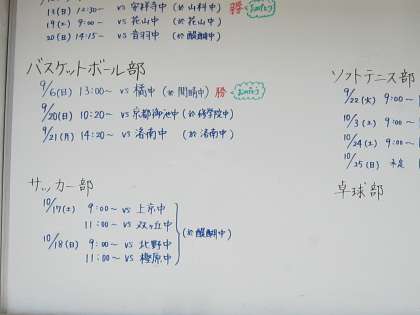 13(日) 12:30~ vs 安祥寺中 (於 山科中) 勝
19(土) 9:00~ vs 花山中 (於 花山中)
20(日) 14:15~ vs 音羽中 (於 醍醐中)
バスケットボール部
9/6(日) 13:00~ vs 橘中 (於 開晴中) 勝 おめでとう
9/20(日) 10:20~ vs 京都御池中 (於 修学院中)
9/21(月) 14:20~ vs 洛南中 (於 洛南中)
サッカー部
10/17(土) 9:00~ vs 上京中
11:00~ vs 双ヶ丘中
(於 醍醐中)
10/18(日) 9:00~ vs 北野中
11:00~ vs 樫原中
ソフトテニス部
9/22(火) 9:00~
10/3(土) 9:00~
10/24(土) 9:00~
10/25(日) 未定
卓球部